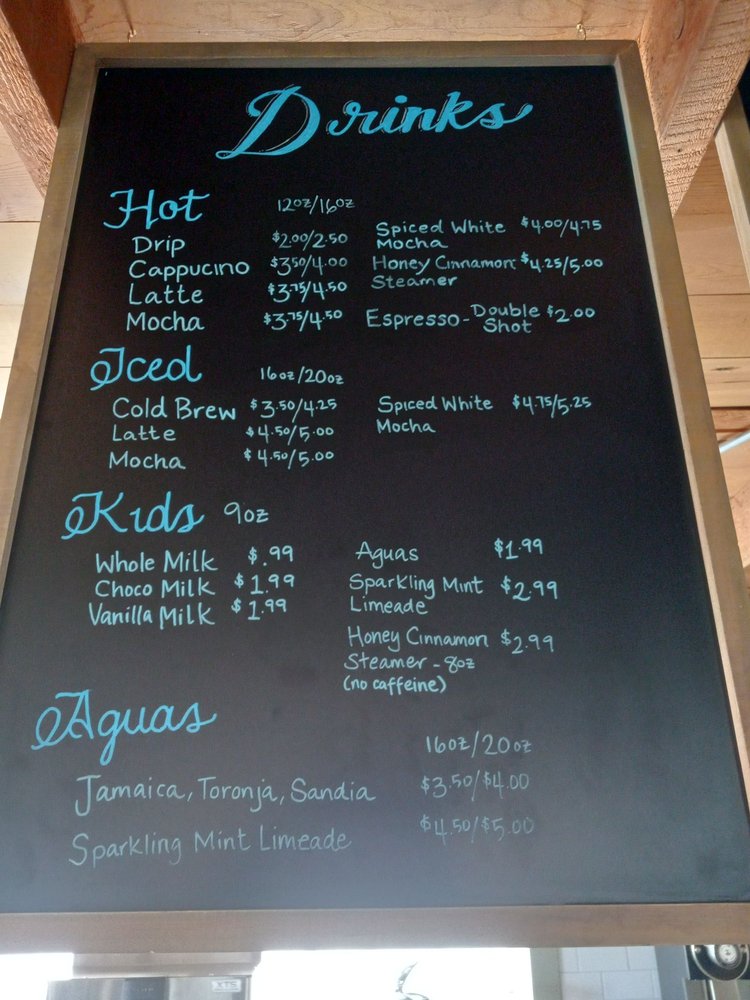 Drinks
Hot 12oz/16oz
Drip $2.00/2.50
Cappucino $3.50/4.00
Latte $3.75/4.50
Mocha $3.75/4.50
Spiced White $4.00/4.75
Mocha
Honey Cinnamon $4.25/5.00
Steamer
Espresso - Double $2.00
Shot
Iced 16oz/20oz
Cold Brew $3.50/4.25
Latte $4.50/5.00
Mocha $4.50/5.00
Spiced White $4.75/5.25
Mocha
Kids 9oz
Whole Milk $.99
Choco Milk $1.99
Vanilla Milk $1.99
Aguas $1.99
Sparkling Mint $2.99
Limeade
Honey Cinnamon $2.99
Steamer - 8oz
(no caffeine)
Aguas
16oz/20oz
Jamaica, Toronja, Sandia $3.50/$4.00
Sparkling Mint Limeade $4.50/$5.00
XTS